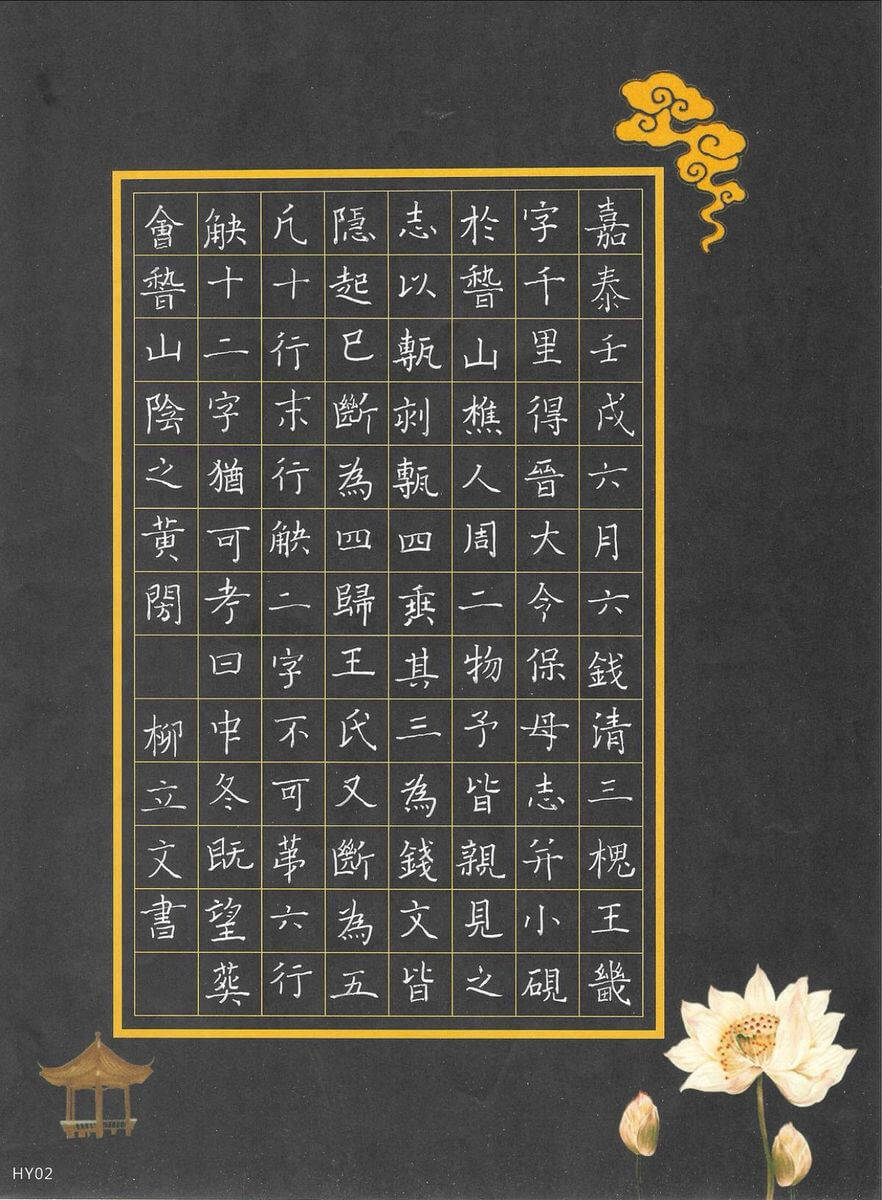 嘉泰壬戌六月六錢清三槐王畿
字千里得晉大令保母志并小硯
於嵇山樵人周二物予皆親見之
志以甎刹甎四垂其三為錢文皆
隱起已斷為四歸王氏又斷為五
凡十行末行觖二字不可苐六行
觖十二字猶可考曰中冬既望葬
會嵇山陰之黃閍
柳立文書
HY02